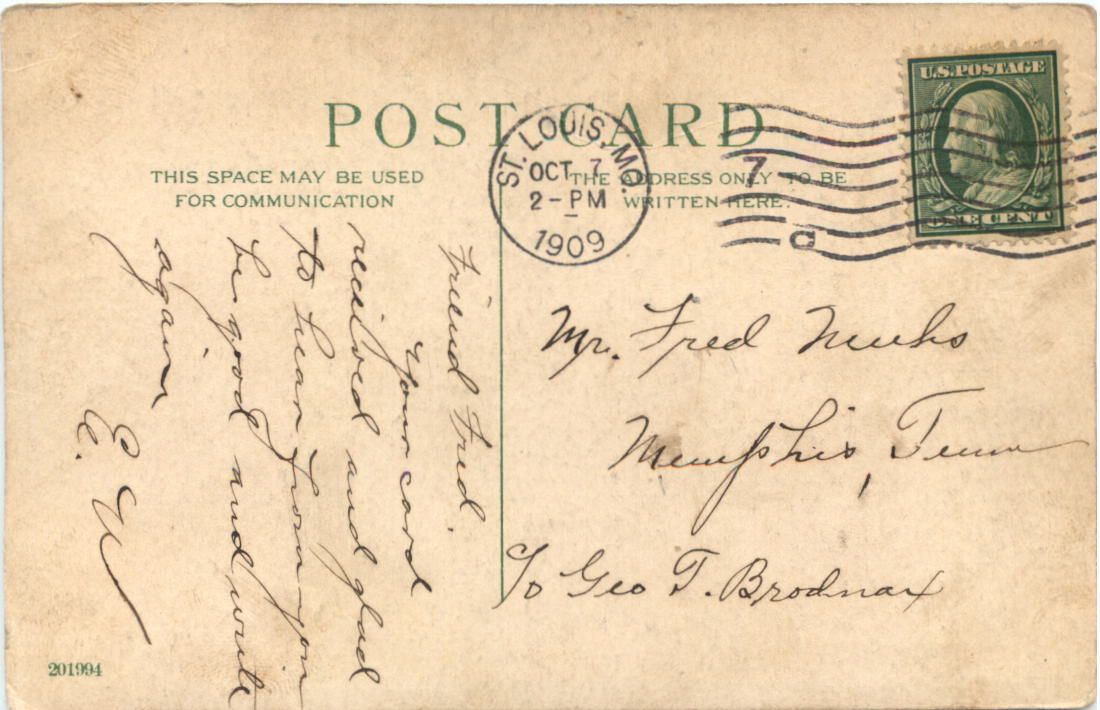 POST CARD
THIS SPACE MAY BE USED
FOR COMMUNICATION
THE ADDRESS ONLY TO BE
WRITTEN HERE.
ST. LOUIS, MO.
OCT 7
2-PM
1909
7
d
U.S. POSTAGE
ONE CENT
Friend Fred.
Your card
received and glad
to hear from you
be good and write
again
E. W
Mr. Fred
Memphis, Tenn
c/o Geo T. Brodnax
201994